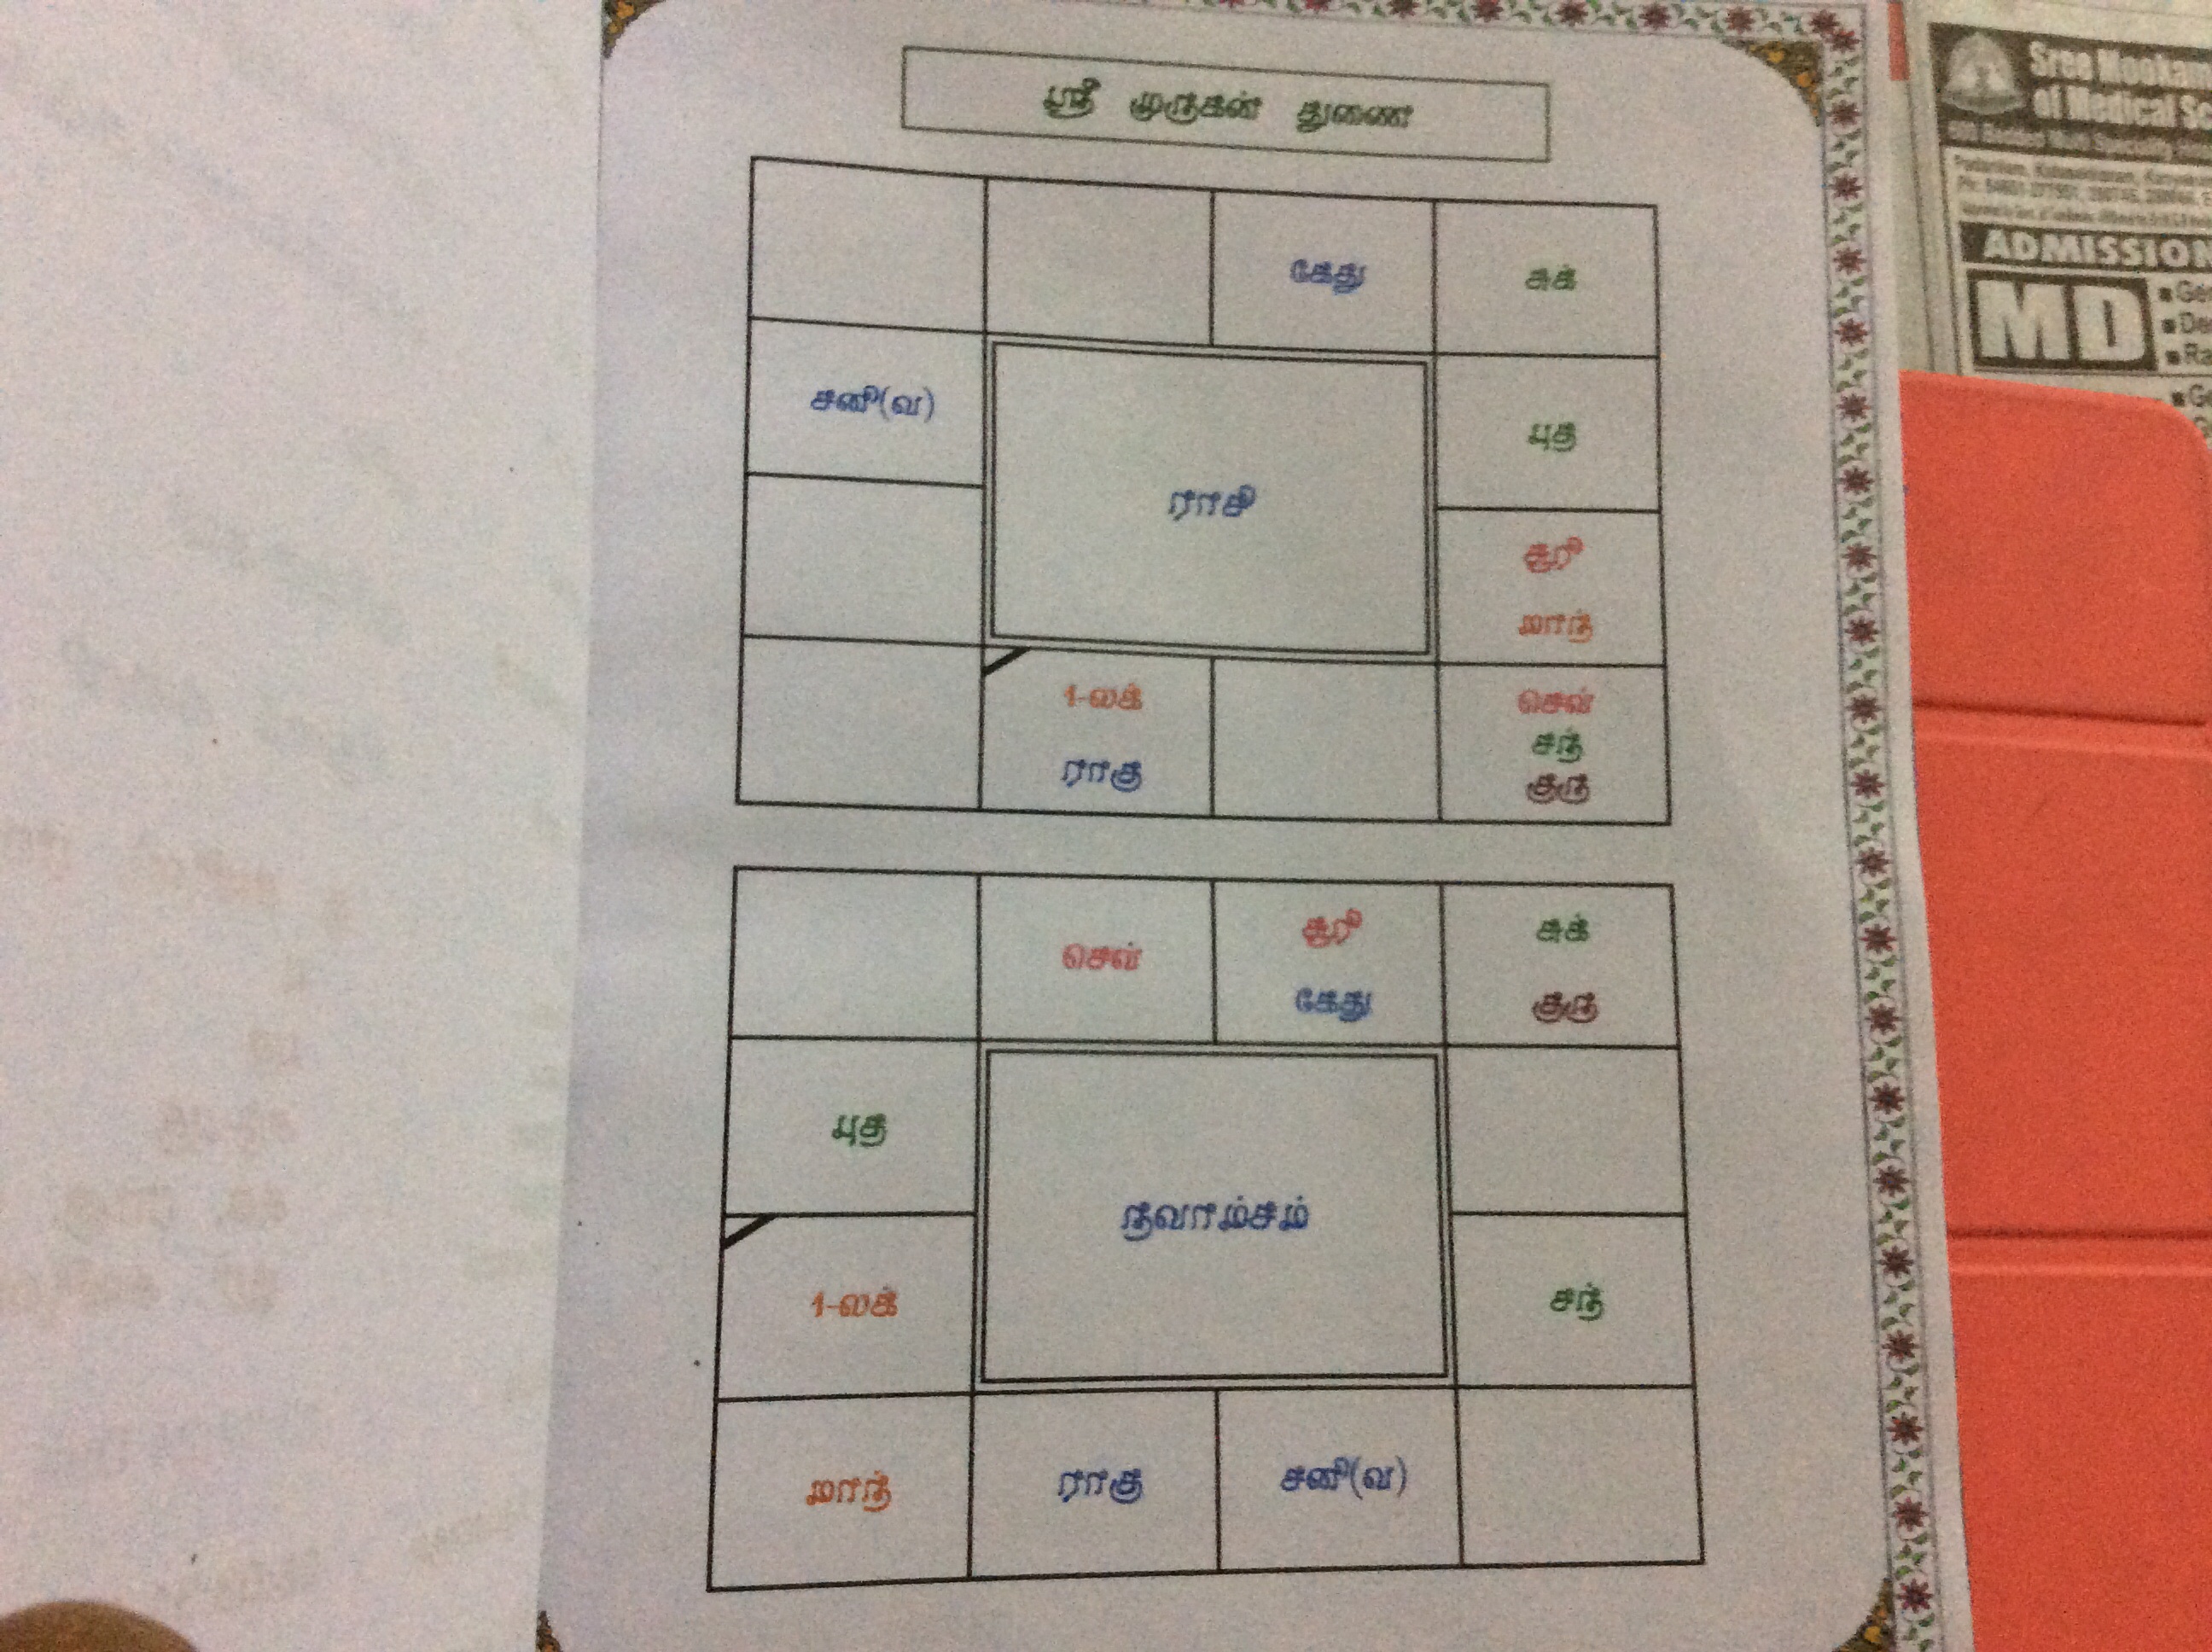 ஸ்ரீ முருகன் துணை
கேது
சுக்
சனி(வ)
ராசி
புத
சூரி
மாந்
1-லக்
ராகு
செவ்
சந்
குரு
செவ்
சூரி
கேது
சுக்
குரு
புத
நவாம்சம்
1-லக்
சந்
மாந்
ராகு
சனி(வ)
Sree
of Medical
ADMISSION
MD